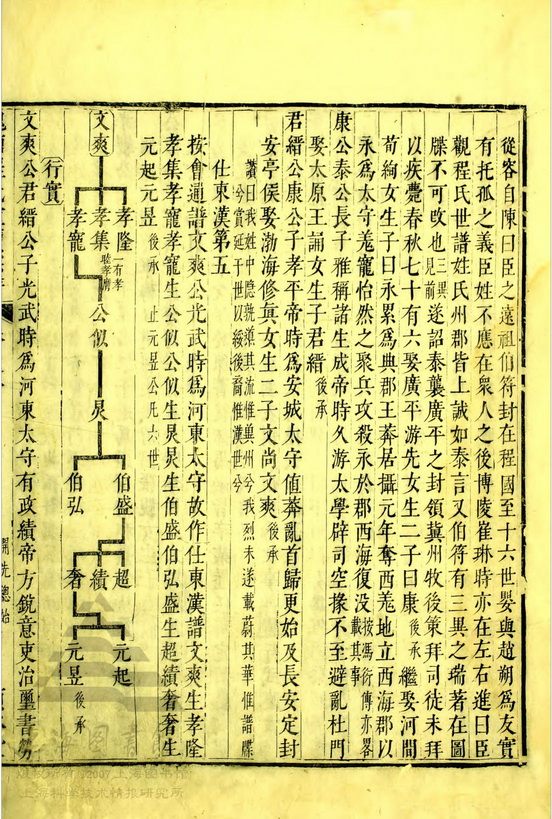 從容自陳曰臣之遠祖伯符封在程國至十六世嬰與趙朔爲友實
有托孤之義臣姓不應在衆人之後博陵崔琳時亦在左右進曰臣
觀程氏世譜姓氏州郡皆上誠如泰言又伯符有三異之瑞著在圖
牒不可改也三異見前遂詔泰襲廣平之封領冀州牧後策拜司徒未拜
以疾薨春秋七十有六娶廣平游先女生二子曰康後承繼娶河間
荀絢女生子曰永累爲典郡王莽居攝元年奪西羗地立西海郡以
永爲太守羗寵怡然之聚兵攻殺永於郡西海復没按馮衍傳亦畧載其事
康公泰公長子雅稱諸生成帝時久游太學辟司空掾不至避亂杜門
娶太原王誦女生子君縉後承
君縉公康公子孝平帝時爲安城太守值莽亂首歸更始及長安定封
安亭侯娶渤海修真女生二子文尚文爽後承
讚曰我姓中隐就遵其流惟兾州兮我烈未遂載蔚其華惟譜牒
兮賞延于世以綏後裔惟漢世兮
仕東漢第五
按會通譜文爽公光武時爲河東太守故作仕東漢譜文爽生孝隆
孝集孝寵孝寵生公似公似生炅炅生伯盛伯弘盛生超績奢奢生
元起元昱後承 止元昱公凡六世
文爽
孝隆
孝集一有孝
孝寵
公似
炅
伯盛
伯弘
超
績
奢
元起
元昱後承
行實
文爽公君縉公子光武時爲河東太守有政績帝方銳意吏治璽書勞